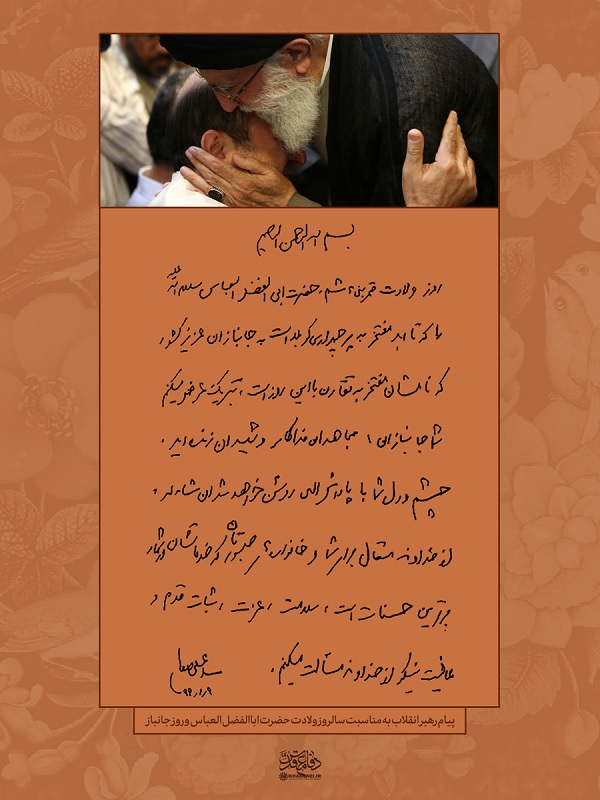 بسم الله الرحمن الرحیم
روز ولادت قمر بنی‌هاشم، حضرت ابی الفضل العباس سلام‌الله‌علیه
را که تا ابد مفتخر به پرچمداری کربلا است به جانبازان عزیز کشور
که نامشان مفتخر به تقارن با این روز است، تبریک عرض میکنم
شما جانبازان، مجاهدان فداکار و شهیدان زنده‌اید.
چشم و دل شما با پاداش الهی روشن خواهد شد ان شاءالله.
از خداوند متعال برای شما و خانواده‌ی صبورتان که خدماتشان در شمار
برترین حسنات است، سلامت، عزت، ثبات قدم و
عاقبت نیکو از خداوند مسألت میکنم.
سید علی خامنه‌ای
۹۹/۱/۹
پیام رهبر انقلاب به مناسبت سالروز ولادت حضرت اباالفضل العباس و روز جانباز
دفاع مقدس
KHAMENEI.IR